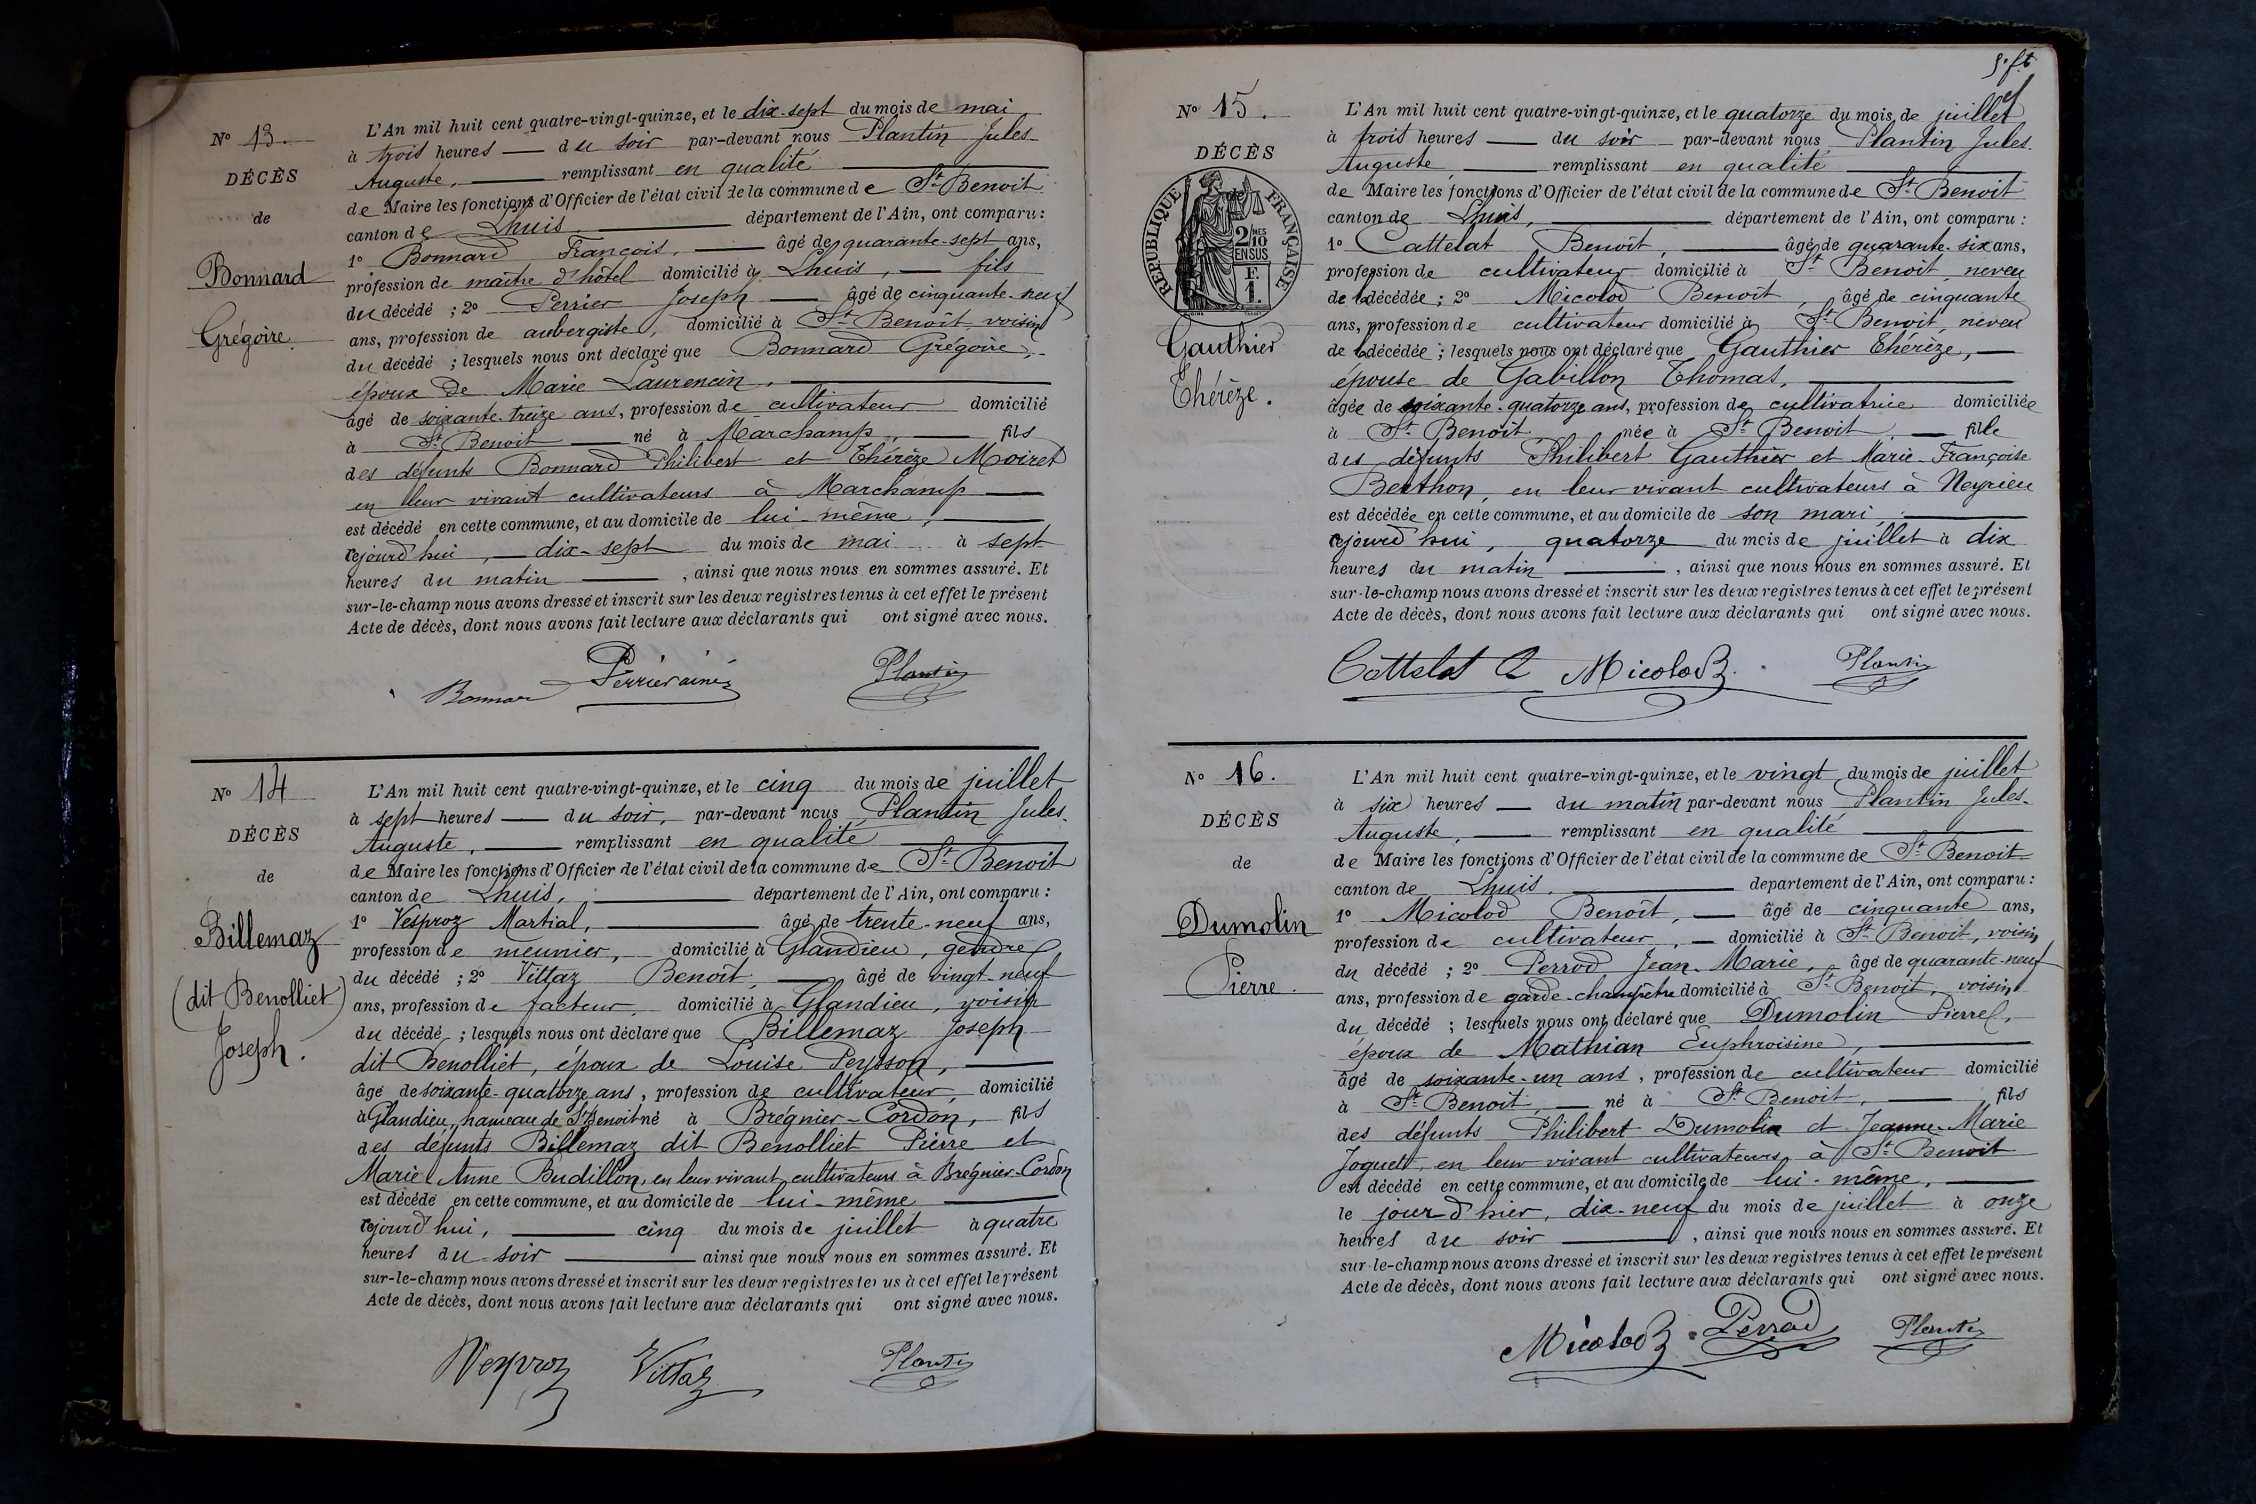 N° 13.
DÉCÈS
de
Bonnard
Grégoire.
L'An mil huit cent quatre-vingt-quinze, et le dix-sept du mois de mai
à trois heures — du soir par-devant nous Plantin Jules-
Auguste, — remplissant en qualité
de Maire les fonctions d'Officier de l'état civil de la commune de St Benoit
canton de Lhuis département de l'Ain, ont comparu :
1° Bonnard François, — âgé de quarante-sept ans,
profession de maître d'hôtel domicilié à Lhuis, — fils
du décédé ; 2° Perrier Joseph — âgé de cinquante-neuf
ans, profession de aubergiste, domicilié à St Benoît, voisin
du décédé ; lesquels nous ont déclaré que Bonnard Grégoire,
époux de Marie Laurencin,
âgé de soixante-treize ans, profession de cultivateur domicilié
à St Benoit — né à Marchamp, — fils
des défunts Bonnard Philibert et Thérèze Moiret
en leur vivant cultivateurs à Marchamp —
est décédé en cette commune, et au domicile de lui-même,
cejourd'hui, — dix-sept du mois de mai à sept
heures du matin — , ainsi que nous nous en sommes assuré. Et
sur-le-champ nous avons dressé et inscrit sur les deux registres tenus à cet effet le présent
Acte de décès, dont nous avons fait lecture aux déclarants qui ont signé avec nous.
Bonnard Perrier ainé Plantin
N° 14
DÉCÈS
de
Billemaz
(dit Benolliet)
Joseph.
L'An mil huit cent quatre-vingt-quinze, et le cinq du mois de juillet
à sept heures — du soir, par-devant nous Plantin Jules-
Auguste, — remplissant en qualité
de Maire les fonctions d'Officier de l'état civil de la commune de St Benoit
canton de Lhuis, département de l'Ain, ont comparu :
1° Vesproz Martial, — âgé de trente-neuf ans,
profession de meunier, domicilié à Glandieu, gendre
du décédé ; 2° Vittaz Benoît, — âgé de vingt-neuf
ans, profession de facteur, domicilié à Glandieu, voisin
du décédé ; lesquels nous ont déclaré que Billemaz Joseph
dit Benolliet, époux de Louise Peysson, —
âgé de soixante-quatorze ans, profession de cultivateur, domicilié
à Glandieu, hameau de St Benoit né à Brégnier-Cordon, fils
des défunts Billemaz dit Benolliet Pierre et
Marie Anne Budillon, en leur vivant cultivateurs à Brégnier-Cordon
est décédé en cette commune, et au domicile de lui-même
cejourd'hui, — cinq du mois de juillet à quatre
heures du soir — ainsi que nous nous en sommes assuré. Et
sur-le-champ nous avons dressé et inscrit sur les deux registres tenus à cet effet le présent
Acte de décès, dont nous avons fait lecture aux déclarants qui ont signé avec nous.
Vesproz Vittaz Plantin
N° 15.
DÉCÈS
REPUBLIQUE FRANÇAISE
2/10 MES
EN SUS
F.
1.
Gauthier
Thérèze.
L'An mil huit cent quatre-vingt-quinze, et le quatorze du mois de juillet
à trois heures — du soir par-devant nous Plantin Jules-
Auguste — remplissant en qualité
de Maire les fonctions d'Officier de l'état civil de la commune de St Benoit
canton de Lhuis, département de l'Ain, ont comparu :
1° Cattelat Benoît, — âgé de quarante-six ans,
profession de cultivateur domicilié à St Benoît, neveu
de la décédée ; 2° Micolod Benoît, âgé de cinquante
ans, profession de cultivateur domicilié à St Benoit, neveu
de la décédée ; lesquels nous ont déclaré que Gauthier Thérèze, —
épouse de Gabillon Thomas,
âgée de soixante-quatorze ans, profession de cultivatrice domiciliée
à St Benoit née à St Benoit, — fille
des défunts Philibert Gauthier et Marie-Françoise
Berthon, en leur vivant cultivateurs à Neyrieu
est décédée en cette commune, et au domicile de son mari,
cejourd'hui, quatorze du mois de juillet à dix
heures du matin — , ainsi que nous nous en sommes assuré. Et
sur-le-champ nous avons dressé et inscrit sur les deux registres tenus à cet effet le présent
Acte de décès, dont nous avons fait lecture aux déclarants qui ont signé avec nous.
Cattelat Micolod B. Plantin
N° 16.
DÉCÈS
de
Dumolin
Pierre.
L'An mil huit cent quatre-vingt-quinze, et le vingt du mois de juillet
à six heures — du matin par-devant nous Plantin Jules-
Auguste, — remplissant en qualité
de Maire les fonctions d'Officier de l'état civil de la commune de St Benoit
canton de Lhuis. département de l'Ain, ont comparu :
1° Micolod Benoît, — âgé de cinquante ans,
profession de cultivateur, — domicilié à St Benoit, voisin
du décédé ; 2° Perrod Jean-Marie, âgé de quarante-neuf
ans, profession de garde-champêtre domicilié à St Benoit, voisin
du décédé ; lesquels nous ont déclaré que Dumolin Pierre,
époux de Mathian Euphroisine,
âgé de soixante-un ans, profession de cultivateur domicilié
à St Benoit, — né à St Benoit, — fils
des défunts Philibert Dumolin et Jeanne-Marie
Joguet, en leur vivant cultivateurs à St Benoit
est décédé en cette commune, et au domicile de lui-même,
le jour d'hier, dix-neuf du mois de juillet à onze
heures du soir — , ainsi que nous nous en sommes assuré. Et
sur-le-champ nous avons dressé et inscrit sur les deux registres tenus à cet effet le présent
Acte de décès, dont nous avons fait lecture aux déclarants qui ont signé avec nous.
Micolod B. Perrod Plantin